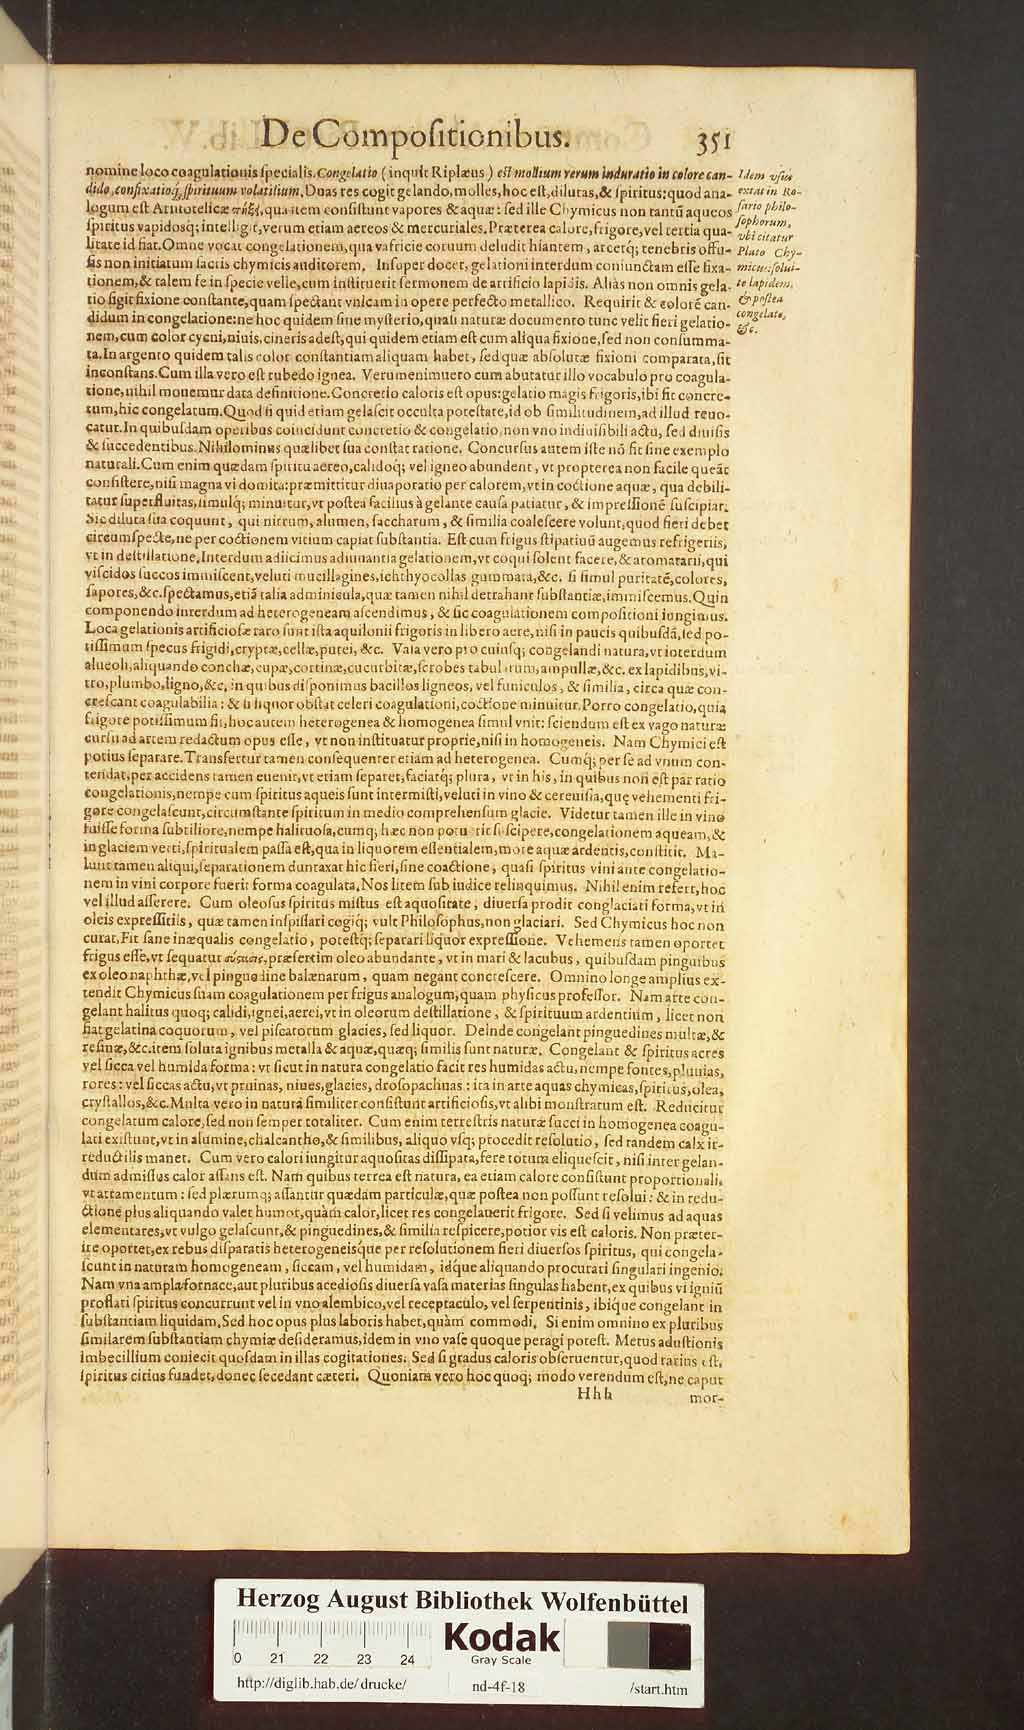 De Compositionibus. 351
nomine loco coagulationis specialis. Congelatio (inquit Riplæus) est mollium rerum induratio in colore can-
dido, confixatioq́; spirituum volatilium. Duas res cogit gelando, molles, hoc est, dilutas, & spiritus: quod ana-
logum est Aristotelicæ πήξει, qua item consistunt vapores & aquæ: sed ille Chymicus non tantũ aqueos
spiritus vapidosq; intelligit, verum etiam aereos & mercuriales. Præterea calore, frigore, vel tertia qua-
litate id fiat. Omne vocat congelationem, qua vafricie coruum deludit hiantem, arcetq; tenebris offu-
sis non initiatum sacris chymicis auditorem. Insuper docet, gelationi interdum coniunctam esse fixa-
tionem, & talem se in specie velle, cum instituerit sermonem de artificio lapidis. Aliàs non omnis gela-
tio figit fixione constante, quam spectant vulcani in opere perfecto metallico. Requirit & colorẽ can-
didum in congelatione: ne hoc quidem sine mysterio, quasi naturæ documento tunc velit fieri gelatio-
nem, cum color cycni, niuis, cineris adest, qui quidem etiam est cum aliqua fixione, sed non consumma-
ta. In argento quidem talis color constantiam aliquam habet, sed quæ absolutæ fixioni comparata, sit
inconstans. Cum illa vero est rubedo ignea. Verumenimuero cum abutatur illo vocabulo pro coagula-
tione, nihil monemur data definitione. Concretio caloris est opus: gelatio magis frigoris, ibi fit concre-
tum, hic congelatum. Quod si quid etiam gelascit occulta potestate, id ob similitudinem, ad illud reuo-
catur. In quibusdam operibus coincidunt concretio & congelatio, non vno indiuisibili actu, sed diuisis
& succedentibus. Nihilominus quælibet sua constat ratione. Concursus autem iste nõ fit sine exemplo
naturali. Cum enim quædam spiritu aereo, calidoq; vel igneo abundent, vt propterea non facile queãt
consistere, nisi magna vi domita: præmittitur diuaporatio per calorem, vt in coctione aquæ, qua debili-
tatur superfluitas, simulq; minuitur, vt postea facilius à gelante causa patiatur, & impressionẽ suscipiat.
Sic diluta sua coquunt, qui nitrum, alumen, saccharum, & similia coalescere volunt, quod fieri debet
circumspecte, ne per coctionem vitium capiat substantia. Est cum frigus stipatiuũ augemus refrigeriis,
vt in destillatione. Interdum adiicimus adiuuantia gelationem, vt coqui solent facere, & aromatarii, qui
viscidos succos immiscent, veluti mucillagines, ichthyocollas gummata, &c. si simul puritatẽ, colores,
sapores, &c. spectamus, etiã talia adminicula, quæ tamen nihil detrahant substantiæ, immiscemus. Quin
componendo interdum ad heterogeneam ascendimus, & sic coagulationem compositioni iungimus.
Loca gelationis artificiosæ raro sunt ista aquilonii frigoris in libero aere, nisi in paucis quibusdã, sed po-
tissimum specus frigidi, cryptæ, cellæ, putei, &c. Vasa vero pro cuiusq; congelandi natura, vt interdum
alueoli, aliquando conchæ, cupæ, cortinæ, cucurbitæ, scrobes tabularum, ampullæ, &c. ex lapidibus, vi-
tro, plumbo, ligno, &c. in quibus disponimus bacillos ligneos, vel funiculos, & similia, circa quæ con-
crescant coagulabilia: & si liquor obstat celeri coagulationi, coctione minuitur. Porro congelatio, quia
frigore potissimum fit, hoc autem heterogenea & homogenea simul vnit: sciendum est ex vago naturæ
cursu ad artem redactum opus esse, vt non instituatur proprie, nisi in homogeneis. Nam Chymici est
potius separare. Transfertur tamen consequenter etiam ad heterogenea. Cumq; per se ad vnum con-
tendat, per accidens tamen euenit, vt etiam separet, faciatq; plura, vt in his, in quibus non est par ratio
congelationis, nempe cum spiritus aqueis sunt intermisti, veluti in vino & cereuisia, quę vehementi fri-
gore congelascunt, circumstante spiritum in medio comprehensum glacie. Videtur tamen ille in vino
fuisse forma subtiliore, nempe halituosa, cumq; hæc non potuerit suscipere, congelationem aqueam, &
in glaciem verti, spiritualem passa est, qua in liquorem essentialem, more aquæ ardentis, constitit. Ma-
lunt tamen aliqui, separationem duntaxat hic fieri, sine coactione, quasi spiritus vini ante congelatio-
nem in vini corpore fuerit forma coagulata. Nos litem sub iudice relinquimus. Nihil enim refert, hoc
vel illud asserere. Cum oleosus spiritus mistus est aquositate, diuersa prodit conglaciati forma, vt in
oleis expressitiis, quæ tamen inspissari cogiq; vult Philosophus, non glaciari. Sed Chymicus hoc non
curat. Fit sane inæqualis congelatio, potestq; separari liquor expressione. Vehemens tamen oportet
frigus esse, vt sequatur præsertim oleo abundante, vt in mari & lacubus, quibusdam pinguibus
ex oleo naphthæ, vel pinguedine balænarum, quam negant concrescere. Omnino longe amplius ex-
tendit Chymicus suam coagulationem per frigus analogum, quam physicus professor. Nam arte con-
gelant halitus quoq; calidi, ignei, aerei, vt in oleorum destillatione, & spirituum ardentium, licet non
fiat gelatina coquorum, vel piscatorum glacies, sed liquor. Deinde congelant pinguedines multæ, &
resinæ, &c. item soluta ignibus metalla & aquæ, quæq; similis sunt naturæ. Congelant & spiritus acres
vel sicca vel humida forma: vt sicut in natura congelatio facit res humidas actu, nempe fontes, pluuias,
rores: vel siccas actu, vt pruinas, niues, glacies, drosopachnas: ita in arte aquas chymicas, spiritus, olea,
crystallos, &c. Multa vero in natura similiter consistunt artificiosis, vt alibi monstratum est. Reducitur
congelatum calore, sed non semper totaliter. Cum enim terrestris naturæ succi in homogenea coagu-
lati existunt, vt in alumine, chalcantho, & similibus, aliquo vsq; procedit resolutio, sed tandem calx ir-
reductilis manet. Cum vero calori iungitur aquositas dissipata, fere totum eliquescit, nisi inter gelan-
dum admissus calor assans est. Nam quibus terrea est natura, ea etiam calore consistunt proportionali,
vt attamentum: sed plærumq; assantur quædam particulæ, quæ postea non possunt resolui: & in redu-
ctione plus aliquando valet humor, quàm calor, licet res congelauerit frigore. Sed si velimus ad aquas
elementares, vt vulgo gelascunt, & pinguedines, & similia respicere, potior vis est caloris. Non præter-
ire oportet, ex rebus disparatis heterogeneisque per resolutionem fieri diuersos spiritus, qui congela-
scunt in naturam homogeneam, siccam, vel humidam, idque aliquando procurati singulari ingenio.
Nam vna ampla fornace, aut pluribus acediosis diuersa vasa materias singulas habent, ex quibus vi igniũ
proflati spiritus concurrunt vel in vno alembico, vel receptaculo, vel serpentinis, ibique congelant in
substantiam liquidam. Sed hoc opus plus laboris habet, quàm commodi. Si enim omnino ex pluribus
similarem substantiam chymiæ desideramus, idem in vno vase quoque peragi potest. Metus adustionis
imbecillium coniecit quosdam in illas cogitationes. Sed si gradus caloris obseruentur, quod rarius est,
spiritus citius fundet, donec secedant cæteri. Quoniam vero hoc quoq; modo verendum est, ne caput
Hhh mor-
Idem vsus
extat in Ro-
sario philo-
sophorum,
vbi citatur
Plato Chy-
micus: solui-
te lapidem,
& postea
congelate,
&c.
Herzog August Bibliothek Wolfenbüttel
Kodak
Gray Scale
0 21 22 23 24
http://diglib.hab.de/drucke/ nd-4f-18 /start.htm